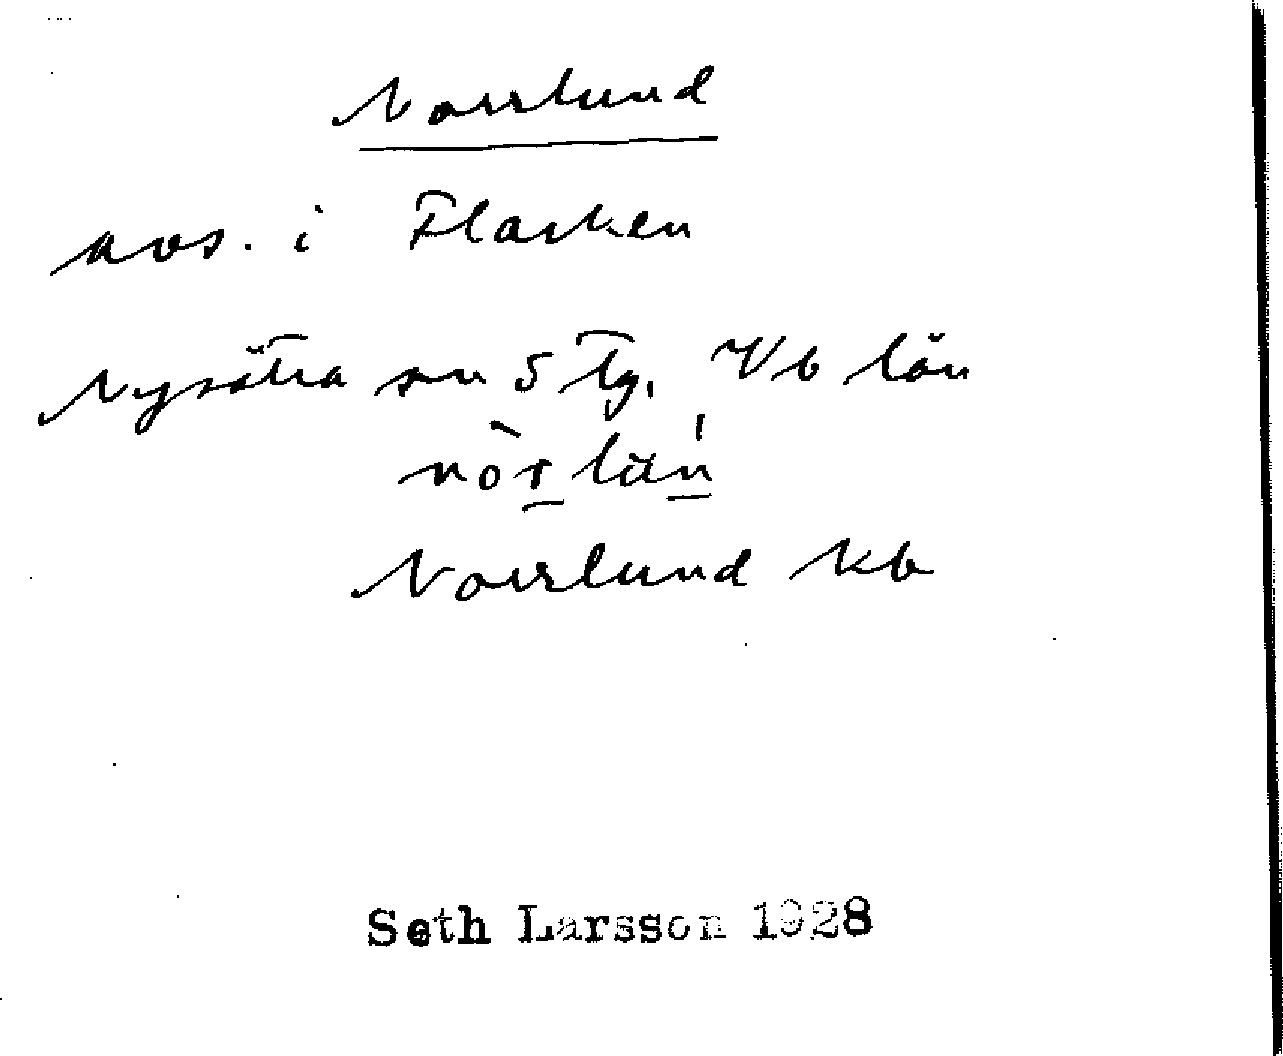 Norrlund
avs. i Flarken
Nysätra sn S Tg. Vb län
nòr̲luń̲
Norrlund kb
Seth Larsson 1928